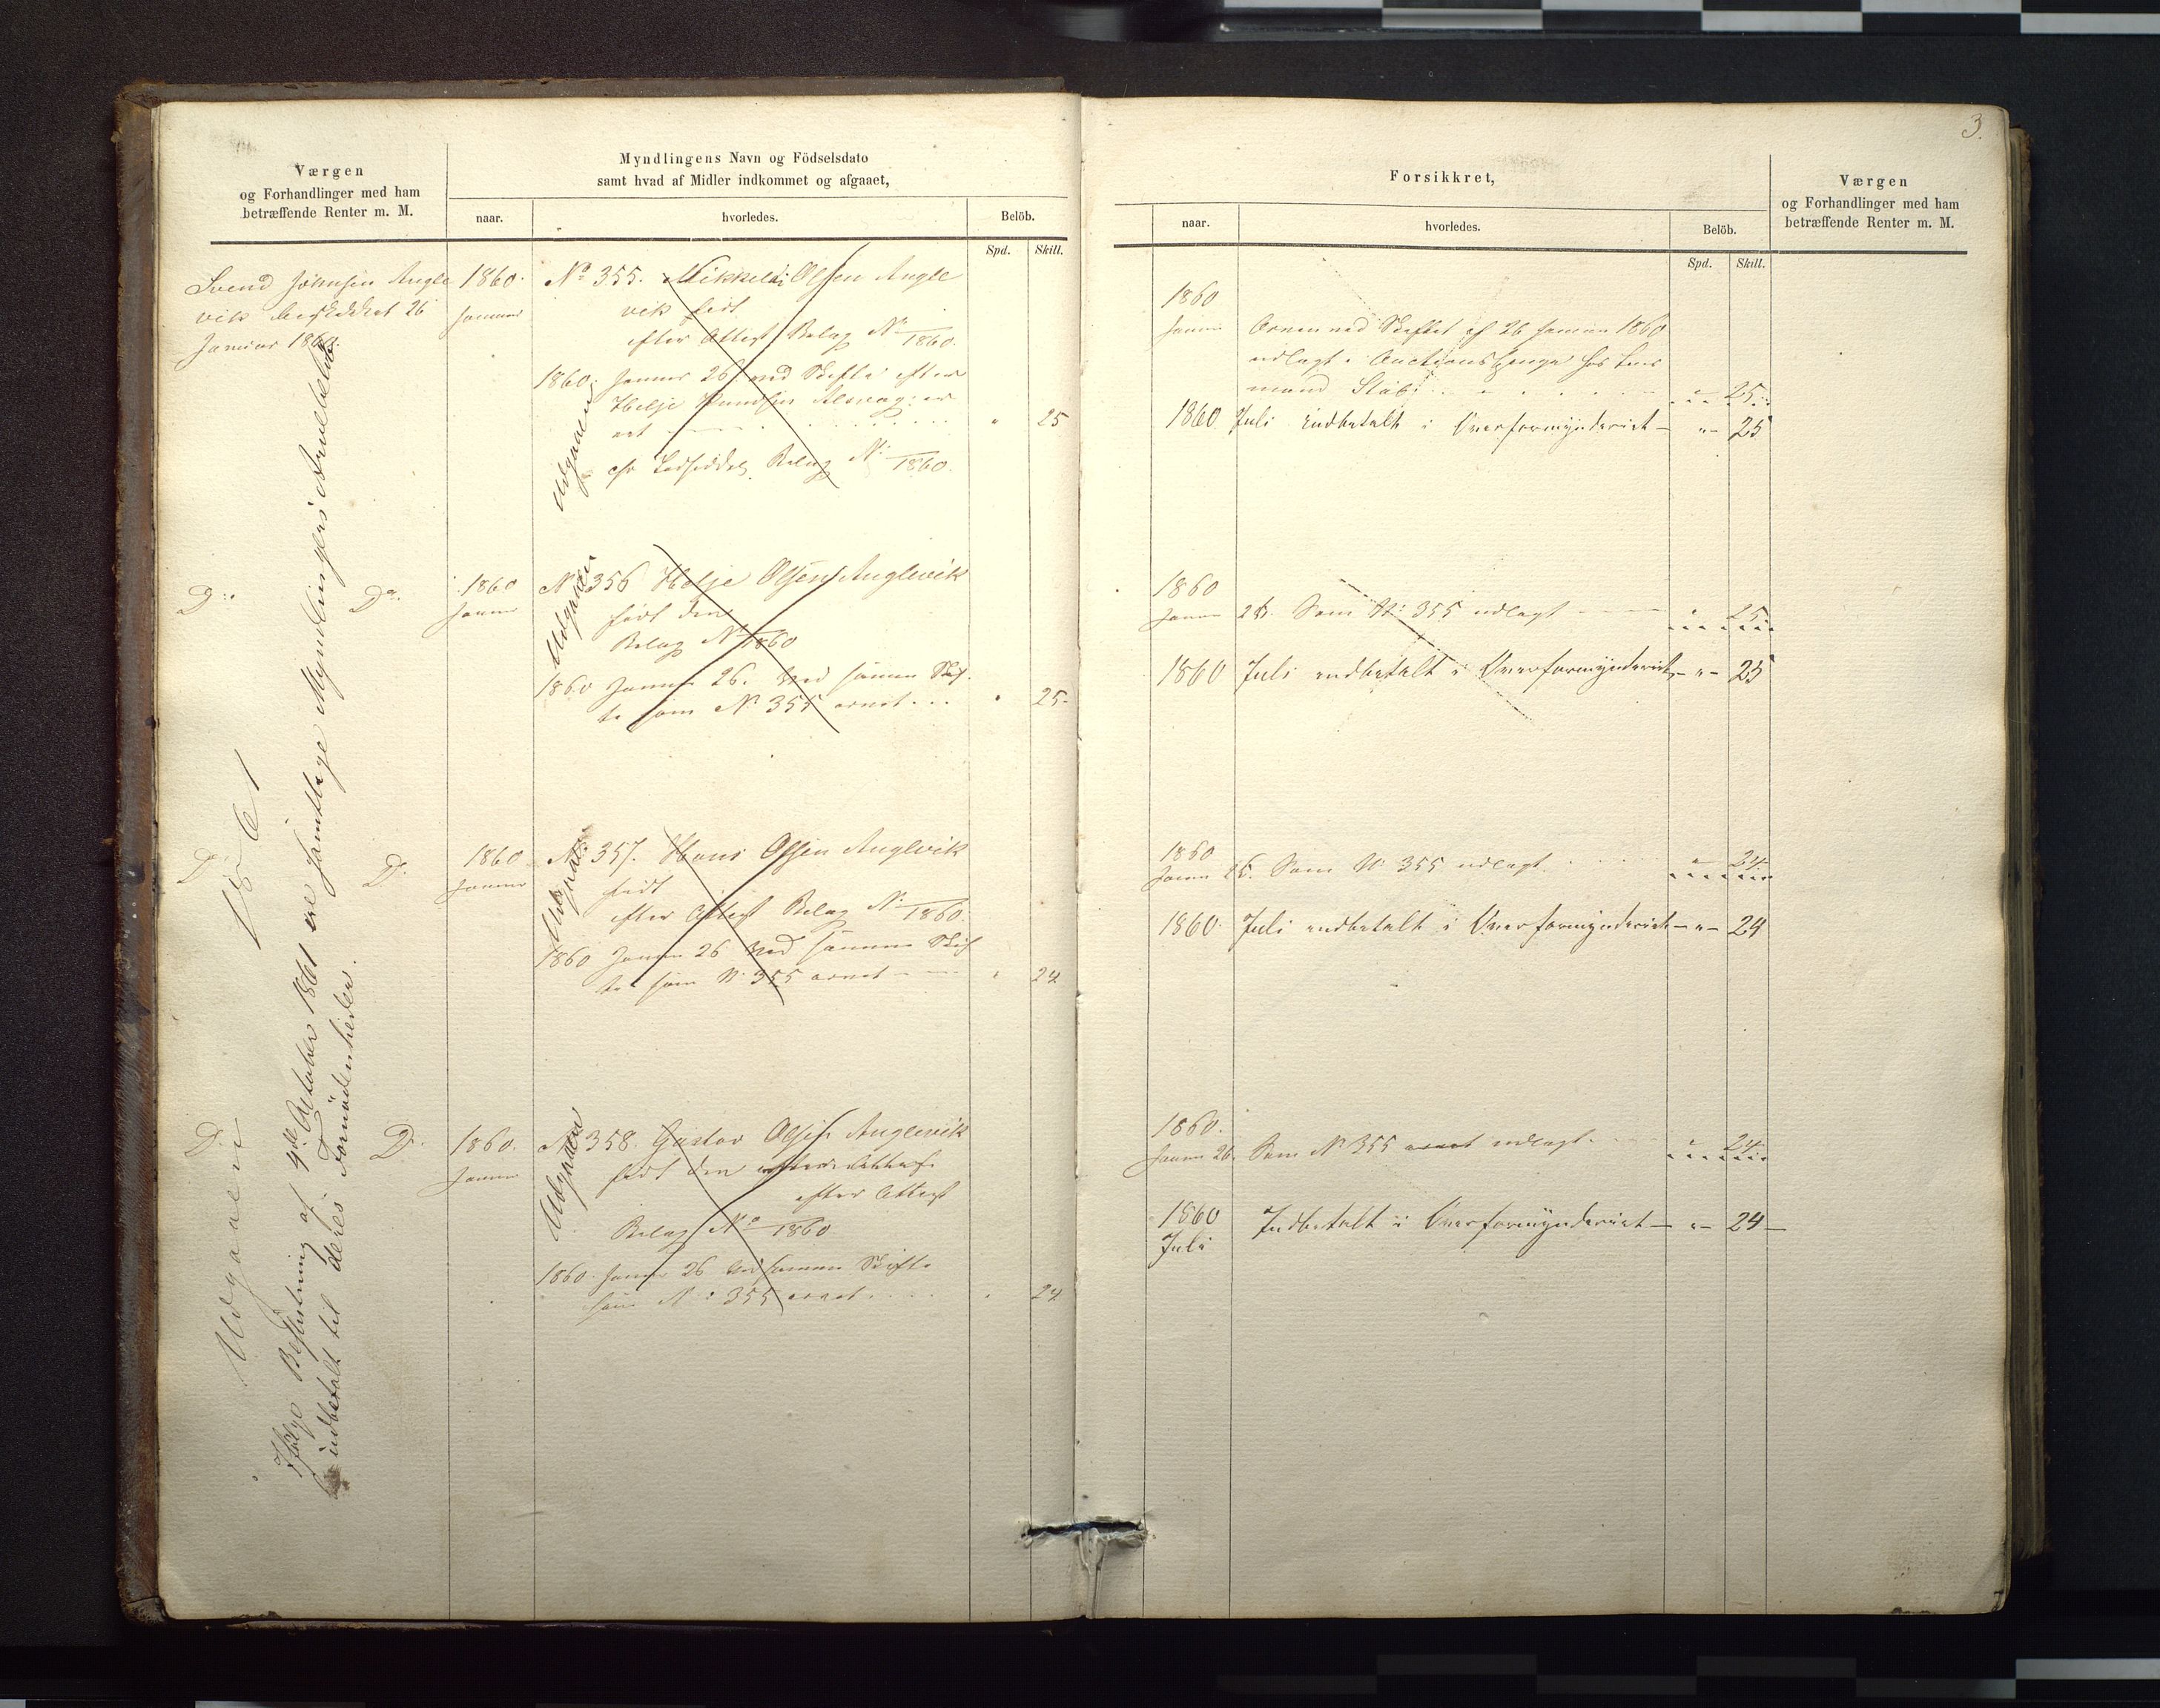 3.
Værgen
og Forhandlinger med ham
betræffende Renter m. M.
Myndlingens Navn og Födselsdato
samt hvad af Midler indkommet og afgaaet,
naar.
hvorledes.
Belöb.
Spd.
Skill.
Svend Johnsen Angle
vik beskikket 26
Januar 1860.
1860.
Januar
No 355. Mikkel Olsen Angle
vik født
efter Attest Belag No /1860.
1860. Januar 26 ved Skifte efter
Helje
arvet
" 25
Belag No /1860.
Udgaaer
Do Do
1860
Januar
No 356 Helje Olsen Anglevik
født den
Belag No /1860
1860 Januar 26. ved samme Skif-
te som No 355 arvet
" 25
Udgaaer
Do Do
1860
Januar
No 357. Hans Olsen Anglevik
født
efter Attest Belag No /1860.
1860 Januar 26 ved samme Skif
te som No 355 arvet
" 24
Udgaaer
Do Do
1860.
Januar
No 358. Gustav Olsen Anglevik
født den
efter Attest
Belag No /1860
1860. Januar 26 ved samme Skifte
som No 355 arvet
" 24
Udgaaer
Udgaaer 1861
Ifølge Beslutning af 4de October 1861 ere samtlige Myndlingers Arvelodder
indbetalt til deres Formödenheder.
Forsikkret,
naar.
hvorledes.
Belöb.
Spd.
Skill.
Værgen
og Forhandlinger med ham
betræffende Renter m. M.
1860
Januar
Arven ved Skiftet af 26 Januar 1860
udlagt i Auctionspenge hos Lens
mand
" 25
1860. Juli indbetalt i Overformynderiet - " - 25
1860
Januar 26. Som No 355 udlagt
" 25
1860 Juli indbetalt i Overformynderiet - " - 25
1860
Januar 26. Som No 355 udlagt.
" 24
1860. Juli indbetalt i Overformynderiet - " - 24
1860.
Januar 26. Som No 355 arvet udlagt.
" 24
1860 Indbetalt i Overformynderiet - " - 24 -
Juli